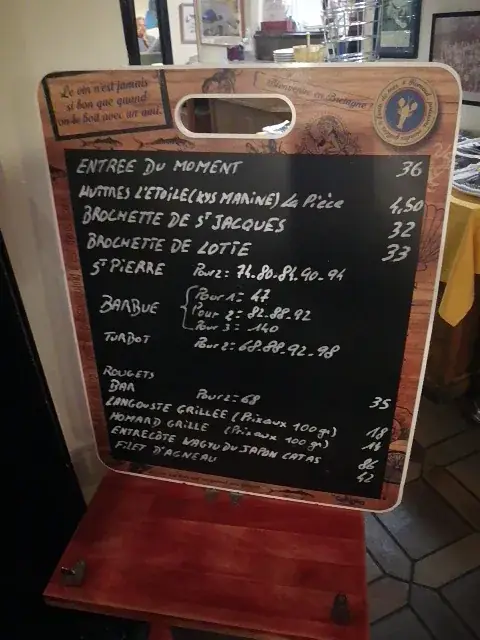 Le vin n'est jamais
si bon que quand
on le boit avec un ami.
Bienvenue en Bretagne
ENTREE DU MOMENT 36
HUITRES L'ETOILE (KYS MARINE) La Pièce 4,50
BROCHETTE DE ST JACQUES 32
BROCHETTE DE LOTTE 33
ST PIERRE Pour 2: 74.80.84.90.94
BARBUE Pour 1: 47
Pour 2: 82.88.92
Pour 3: 140
TURBOT Pour 2: 68.88.92.98
ROUGETS 35
BAR Pour 2: 68
LANGOUSTE GRILLEE (Prix aux 100 gr) 18
HOMARD GRILLE (Prix aux 100 gr) 14
ENTRECÔTE WAGYU DU JAPON CAT A5 86
FILET D'AGNEAU 42